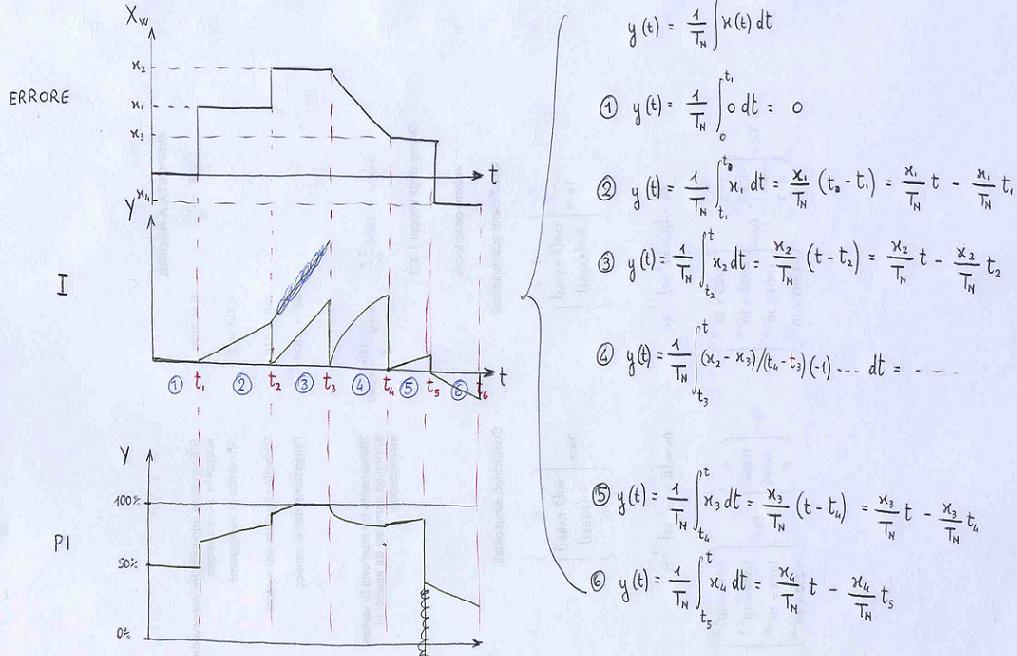 X_w
x₂
ERRORE
x₁
x₃
t
x₄
Y
I
① t₁ ② t₂ ③ t₃ ④ t₄ ⑤ t₅ ⑥ t₆
t
Y
100%
PI
50%
0%
y(t) = 1/T_N ∫ x(t) dt
① y(t) = 1/T_N ∫₀^t₁ 0 dt = 0
② y(t) = 1/T_N ∫_t₁^t₂ x₁ dt = x₁/T_N (t₂ - t₁) = x₁/T_N t - x₁/T_N t₁
③ y(t) = 1/T_N ∫_t₂^t x₂ dt = x₂/T_N (t - t₂) = x₂/T_N t - x₂/T_N t₂
④ y(t) = 1/T_N ∫_t₃^t (x₂ - x₃)/(t₄ - t₃)(-1) ... dt = ....
⑤ y(t) = 1/T_N ∫_t₄^t x₃ dt = x₃/T_N (t - t₄) = x₃/T_N t - x₃/T_N t₄
⑥ y(t) = 1/T_N ∫_t₅^t x₄ dt = x₄/T_N t - x₄/T_N t₅